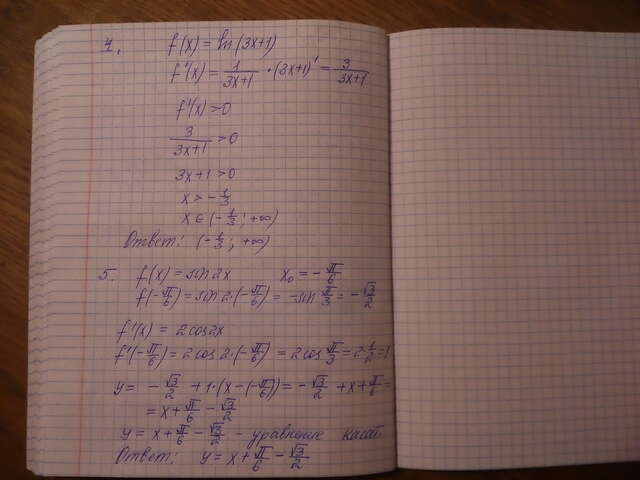 4. f(x) = ln(3x+1)
f'(x) = 1/(3x+1) · (3x+1)' = 3/(3x+1)
f'(x) > 0
3/(3x+1) > 0
3x+1 > 0
x > -1/3
x ∈ (-1/3; +∞)
Ответ: (-1/3; +∞)
5. f(x) = sin 2x x₀ = -π/6
f(-π/6) = sin 2·(-π/6) = -sin π/3 = -√3/2
f'(x) = 2cos2x
f'(-π/6) = 2cos 2·(-π/6) = 2cos π/3 = 2·1/2 = 1
y = -√3/2 + 1·(x-(-π/6)) = -√3/2 + x + π/6 =
= x + π/6 - √3/2
y = x + π/6 - √3/2 - уравнение касат.
Ответ: y = x + π/6 - √3/2